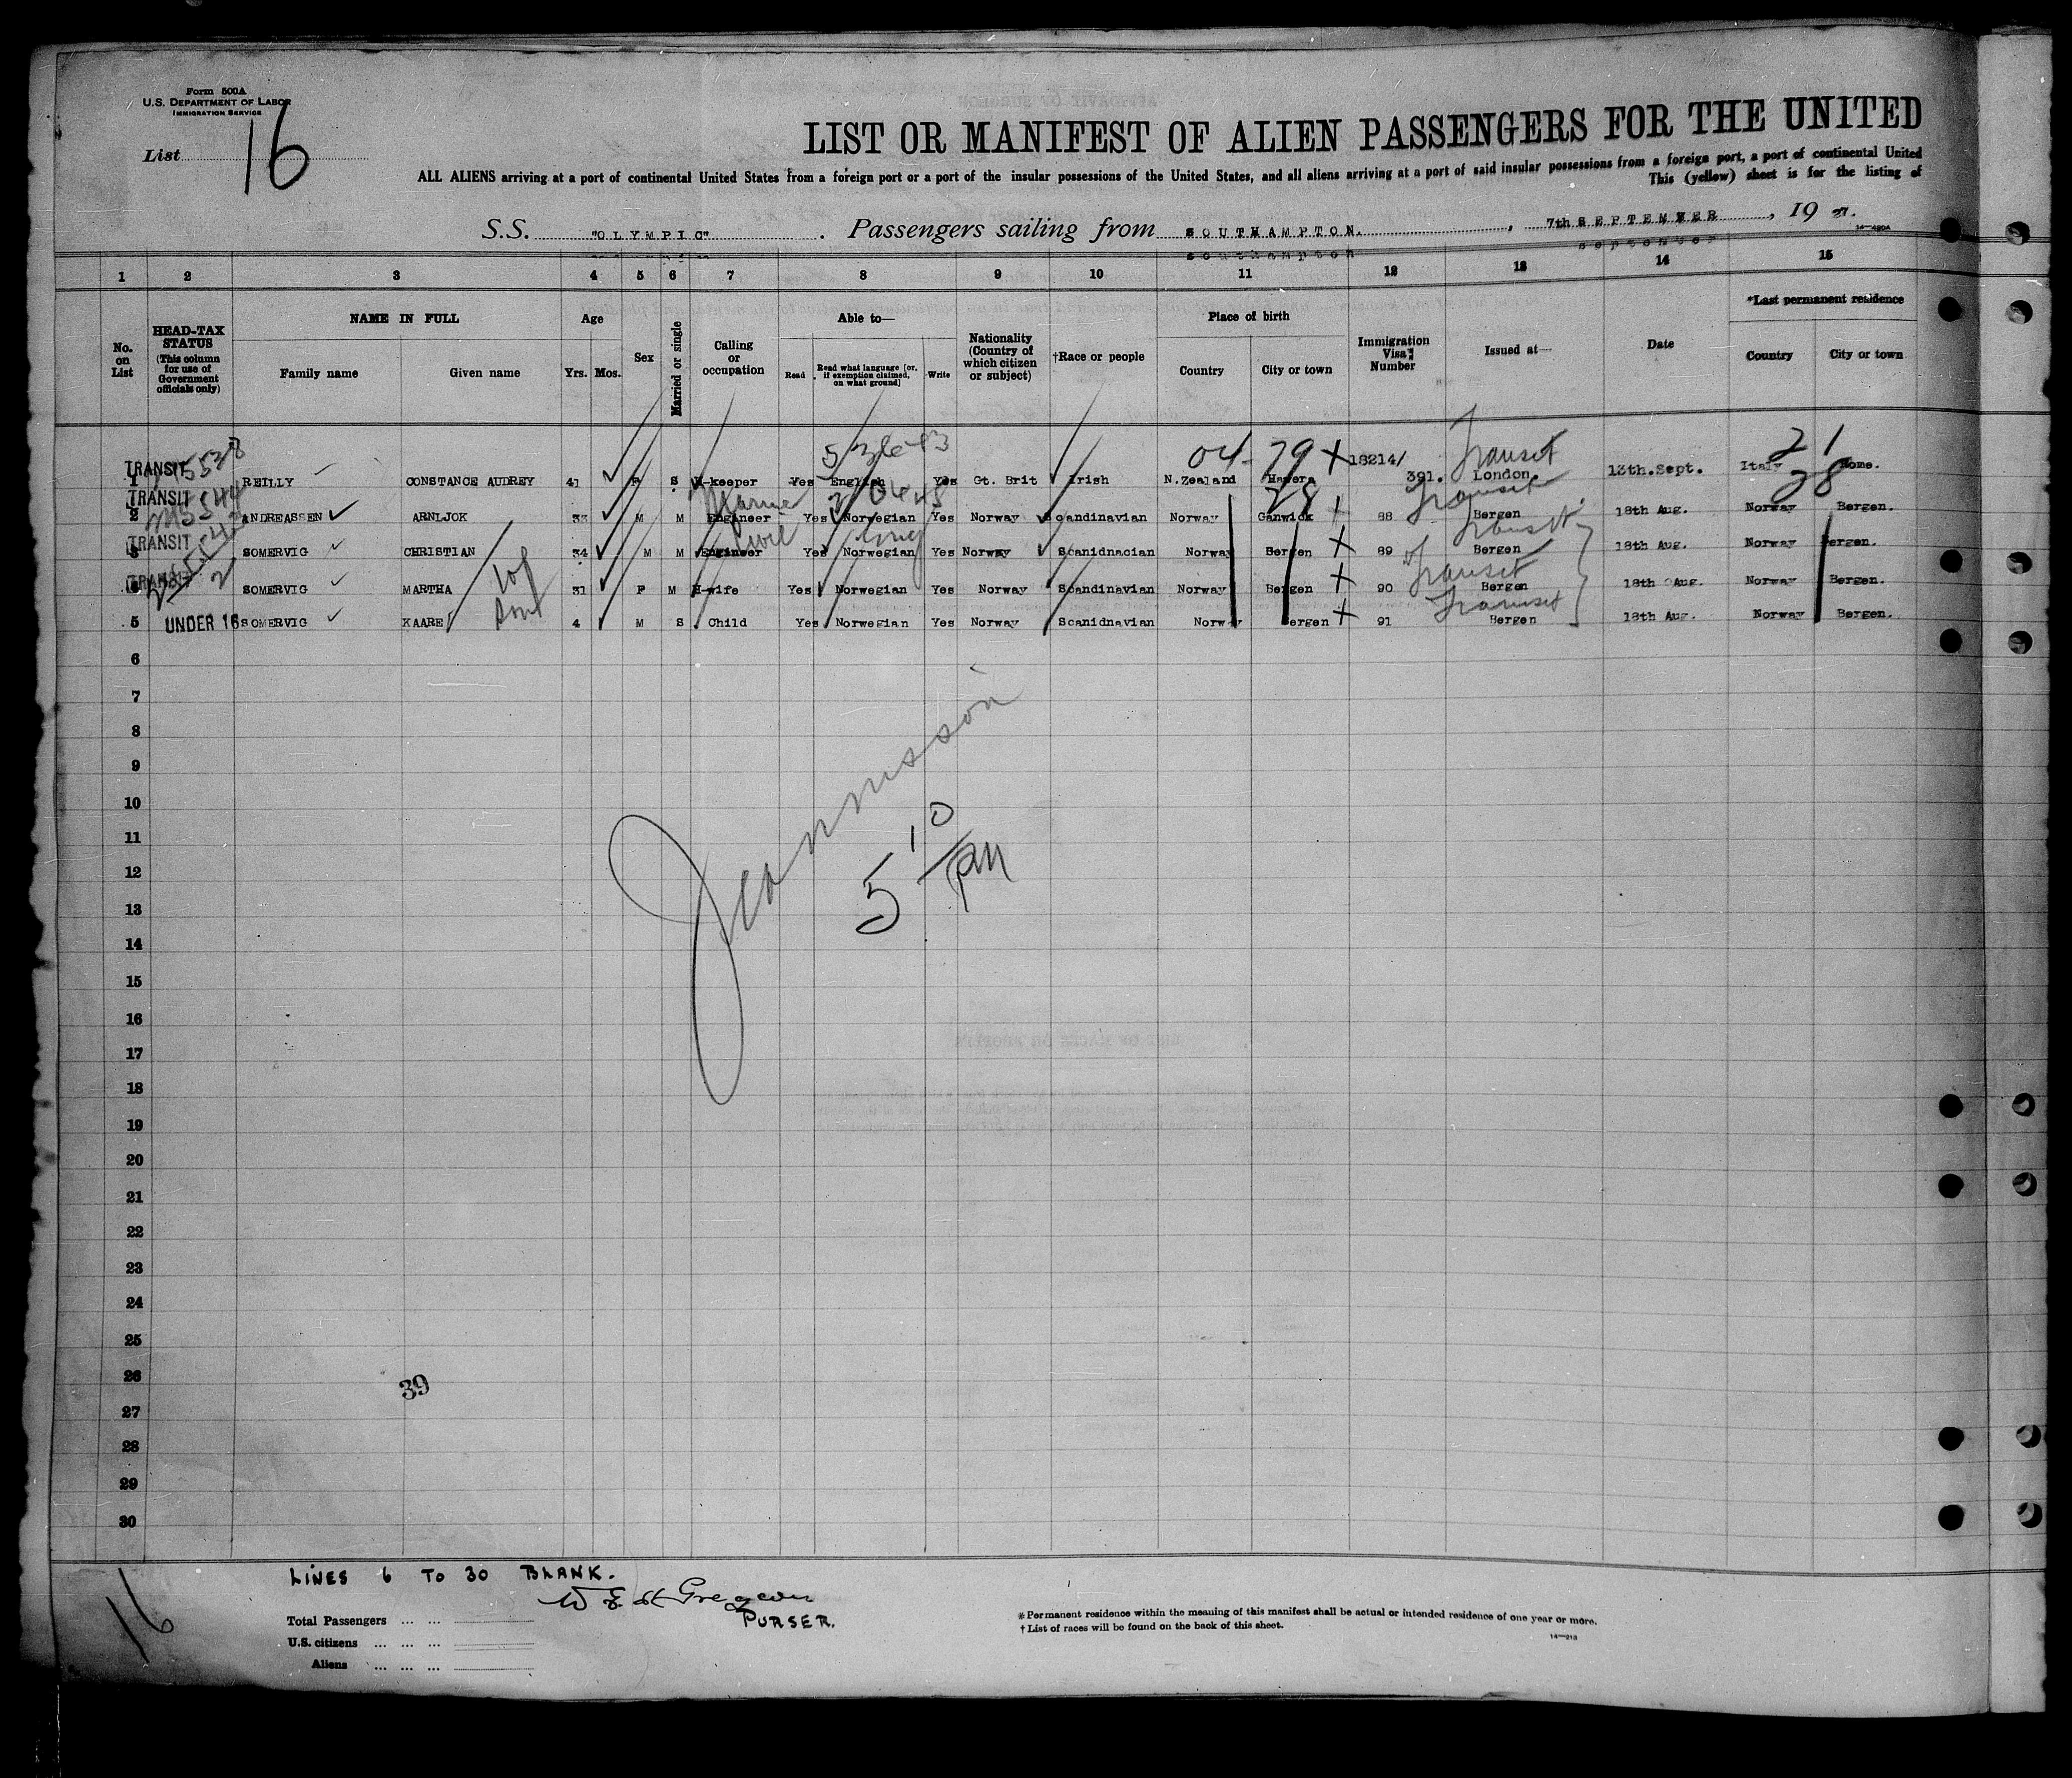 Form 500A
U.S. DEPARTMENT OF LABOR
IMMIGRATION SERVICE
List 16
LIST OR MANIFEST OF ALIEN PASSENGERS FOR THE UNITED
ALL ALIENS arriving at a port of continental United States from a foreign port or a port of the insular possessions of the United States, and all aliens arriving at a port of said insular possessions from a foreign port, a port of continental United
This (yellow) sheet is for the listing of
S.S. "OLYMPIC". Passengers sailing from SOUTHAMPTON., 7th SEPTEMBER, 1927.
Southampton September
1 2 3 4 5 6 7 8 9 10 11 12 13 14 15
No. on List
HEAD-TAX STATUS (This column for use of Government officials only)
NAME IN FULL
Family name Given name
Age
Yrs. Mos.
Sex
Married or single
Calling or occupation
Able to—
Read Read what language [or, if exemption claimed, on what ground] Write
Nationality (Country of which citizen or subject)
†Race or people
Place of birth
Country City or town
Immigration Visa Number
Issued at—
Date
*Last permanent residence
Country City or town
5 04 79 + Transit 21
1 TRANSIT REILLY CONSTANCE AUDREY 41 F S H-keeper Yes English Yes Gt. Brit Irish N.Zealand Hawera 18214/391. London. 13th.Sept. Italy Rome.
Marine 28 Transit 28
2 TRANSIT ANDREASSEN ARNLJOK 33 M M Engineer Yes Norwegian Yes Norway Scandinavian Norway Ganwick + 88 Bergen 18th Aug. Norway Bergen.
Civil Eng Transit
3 TRANSIT SOMERVIG CHRISTIAN 34 M M Engineer Yes Norwegian Yes Norway Scanidnacian Norway Bergen + 89 Bergen 18th Aug. Norway Bergen.
Wf Transit
4 TRANSIT SOMERVIG MARTHA 31 F M H-wife Yes Norwegian Yes Norway Scandinavian Norway Bergen + 90 Bergen 18th Aug. Norway Bergen.
Son Transit
5 UNDER 16 SOMERVIG KAARE 4 M S Child Yes Norwegian Yes Norway Scanidnavian Norway Bergen + 91 Bergen 18th Aug. Norway Bergen.
6
7
8
9
10
11
12
13
14
15
16
17
18
19
20
21
22
23
24
25
26
27
28
29
30
5 10/PM
39
16
LINES 6 TO 30 BLANK.
PURSER.
Total Passengers ... ...
U.S. citizens ... ... ...
Aliens ... ... ...
* Permanent residence within the meaning of this manifest shall be actual or intended residence of one year or more.
† List of races will be found on the back of this sheet.
14—213